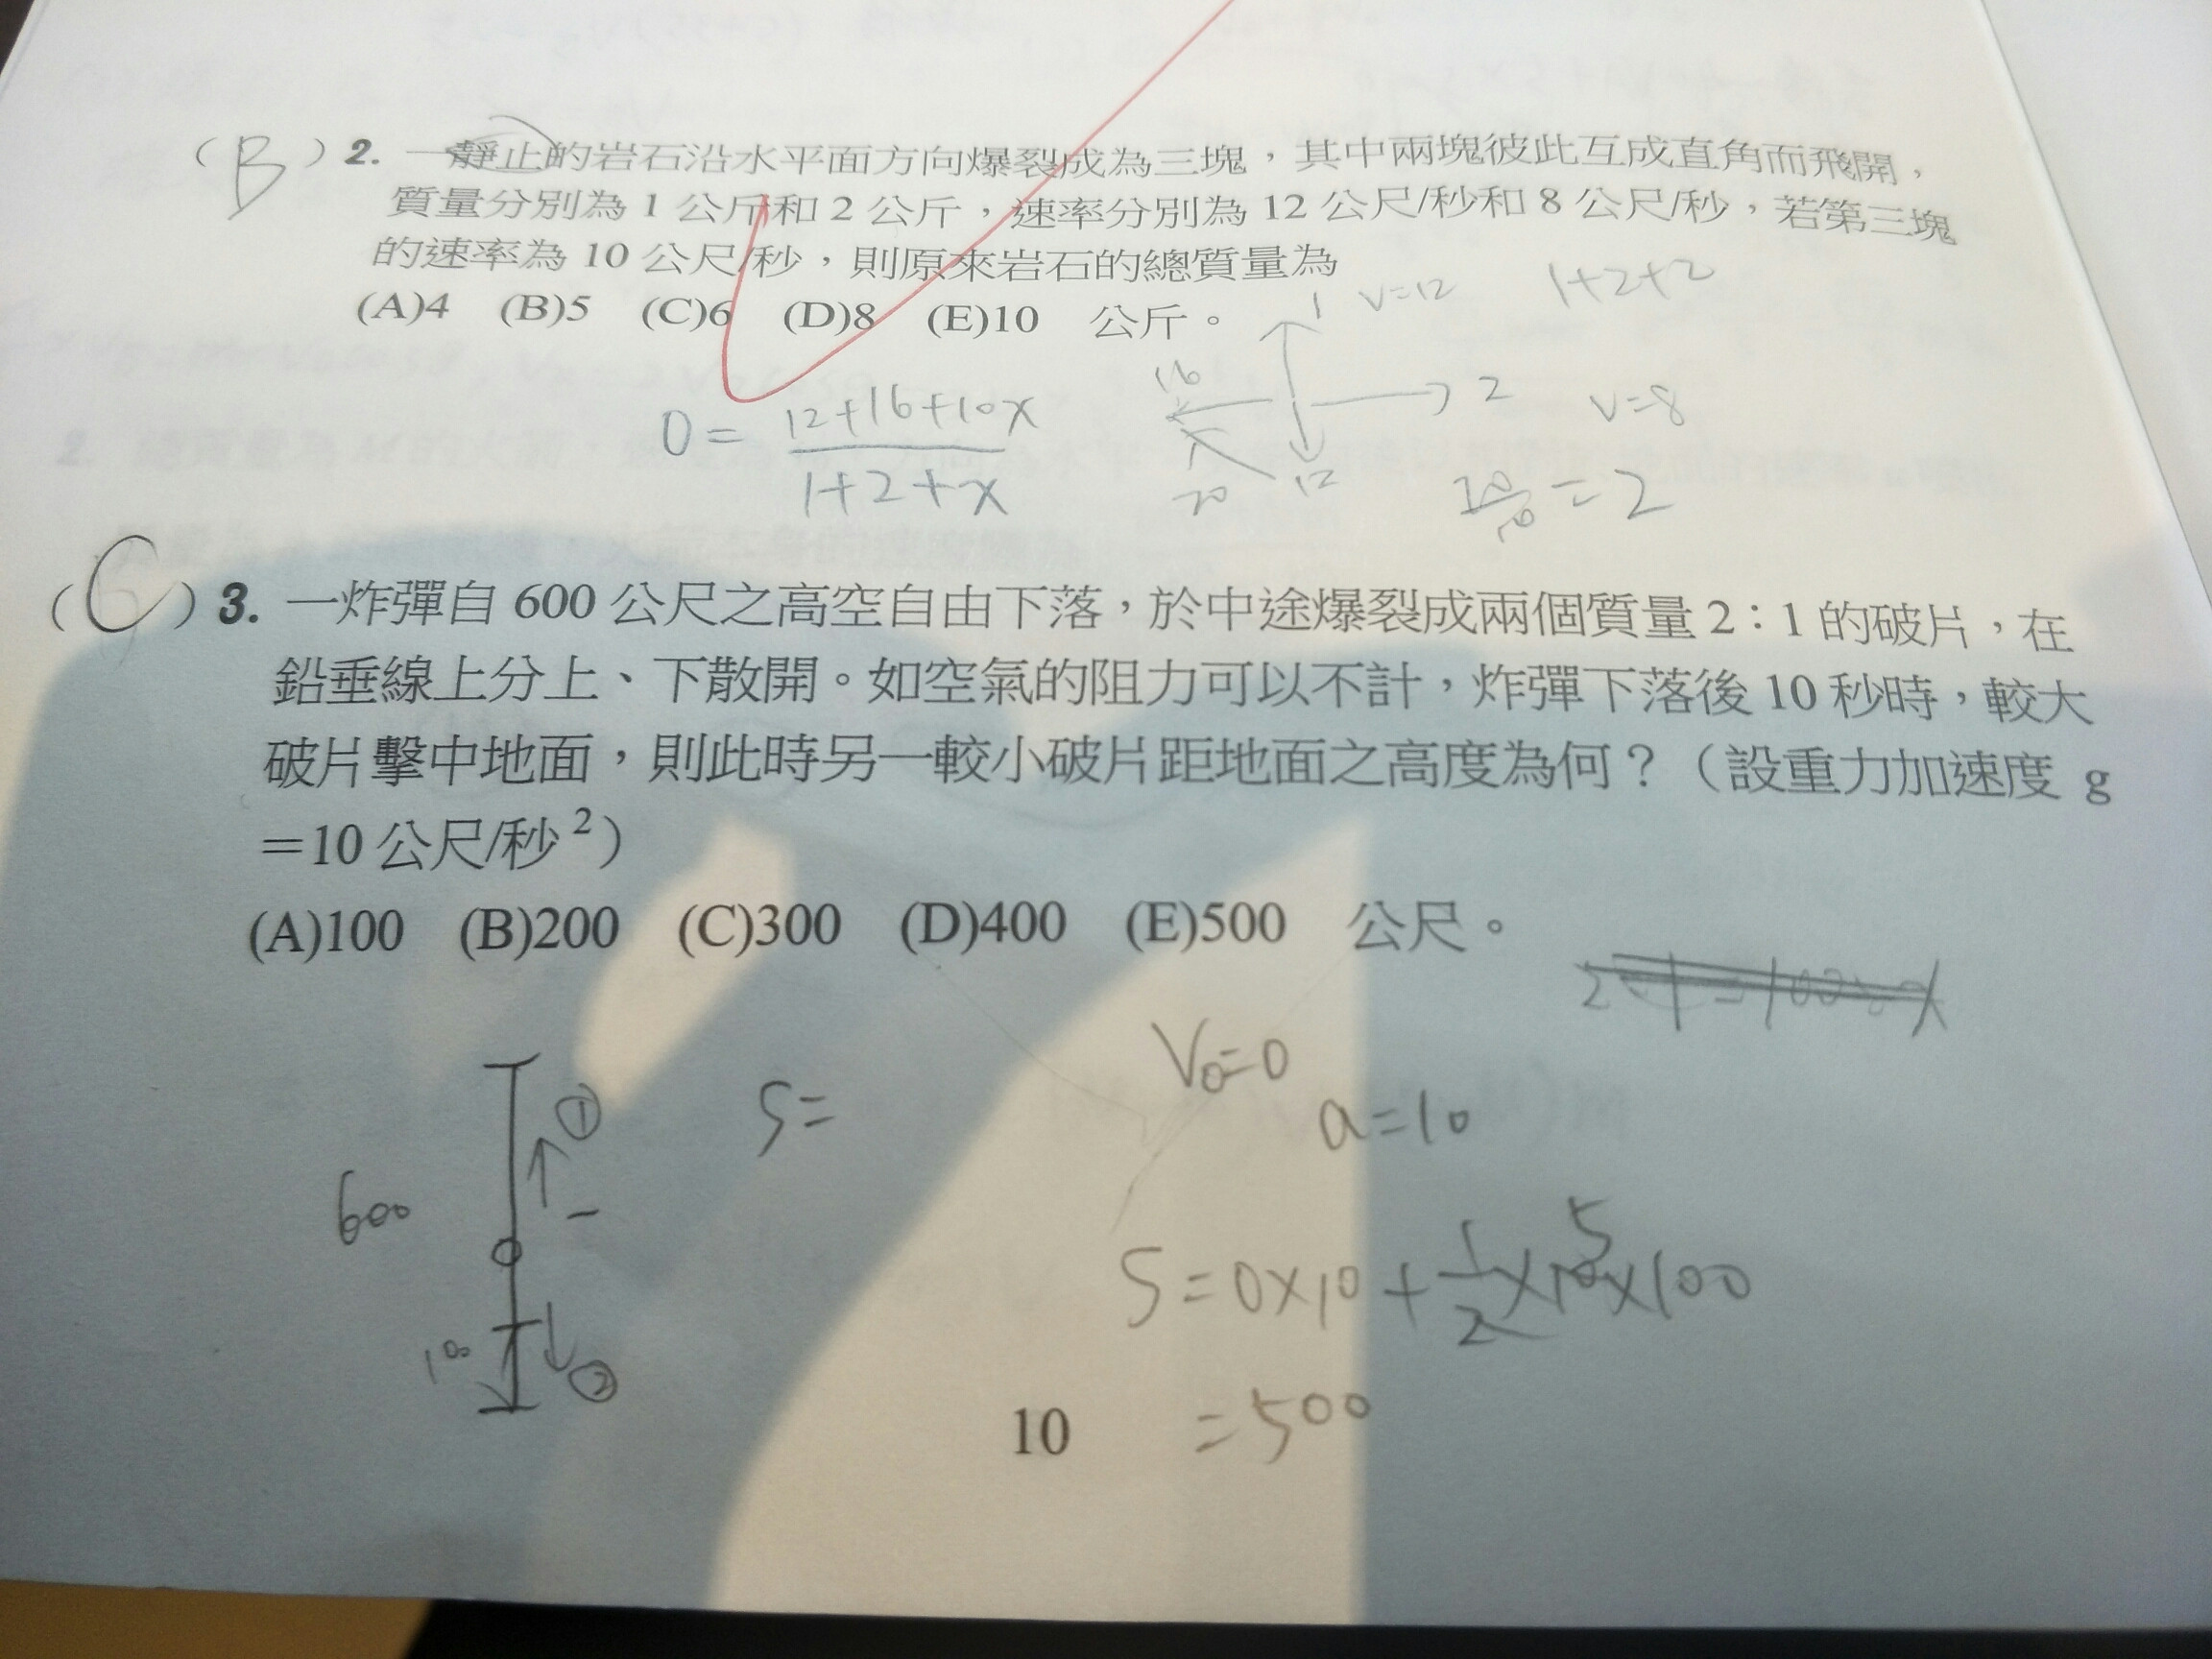 (B) 2. 一靜止的岩石沿水平面方向爆裂成為三塊，其中兩塊彼此互成直角而飛開，
質量分別為 1 公斤和 2 公斤，速率分別為 12 公尺/秒和 8 公尺/秒，若第三塊
的速率為 10 公尺/秒，則原來岩石的總質量為
(A)4 (B)5 (C)6 (D)8 (E)10 公斤。
1 V=12 1+2+2
16 2 V=8
0= 12+16+10x / 1+2+x
20 12 20/10 = 2
(C) 3. 一炸彈自 600 公尺之高空自由下落，於中途爆裂成兩個質量 2：1 的破片，在
鉛垂線上分上、下散開。如空氣的阻力可以不計，炸彈下落後 10 秒時，較大
破片擊中地面，則此時另一較小破片距地面之高度為何？（設重力加速度 g
=10 公尺/秒²）
(A)100 (B)200 (C)300 (D)400 (E)500 公尺。
V₀=0
① S= a=10
600
S=0×10+1/2×10×100
5
100 ②
=500
10